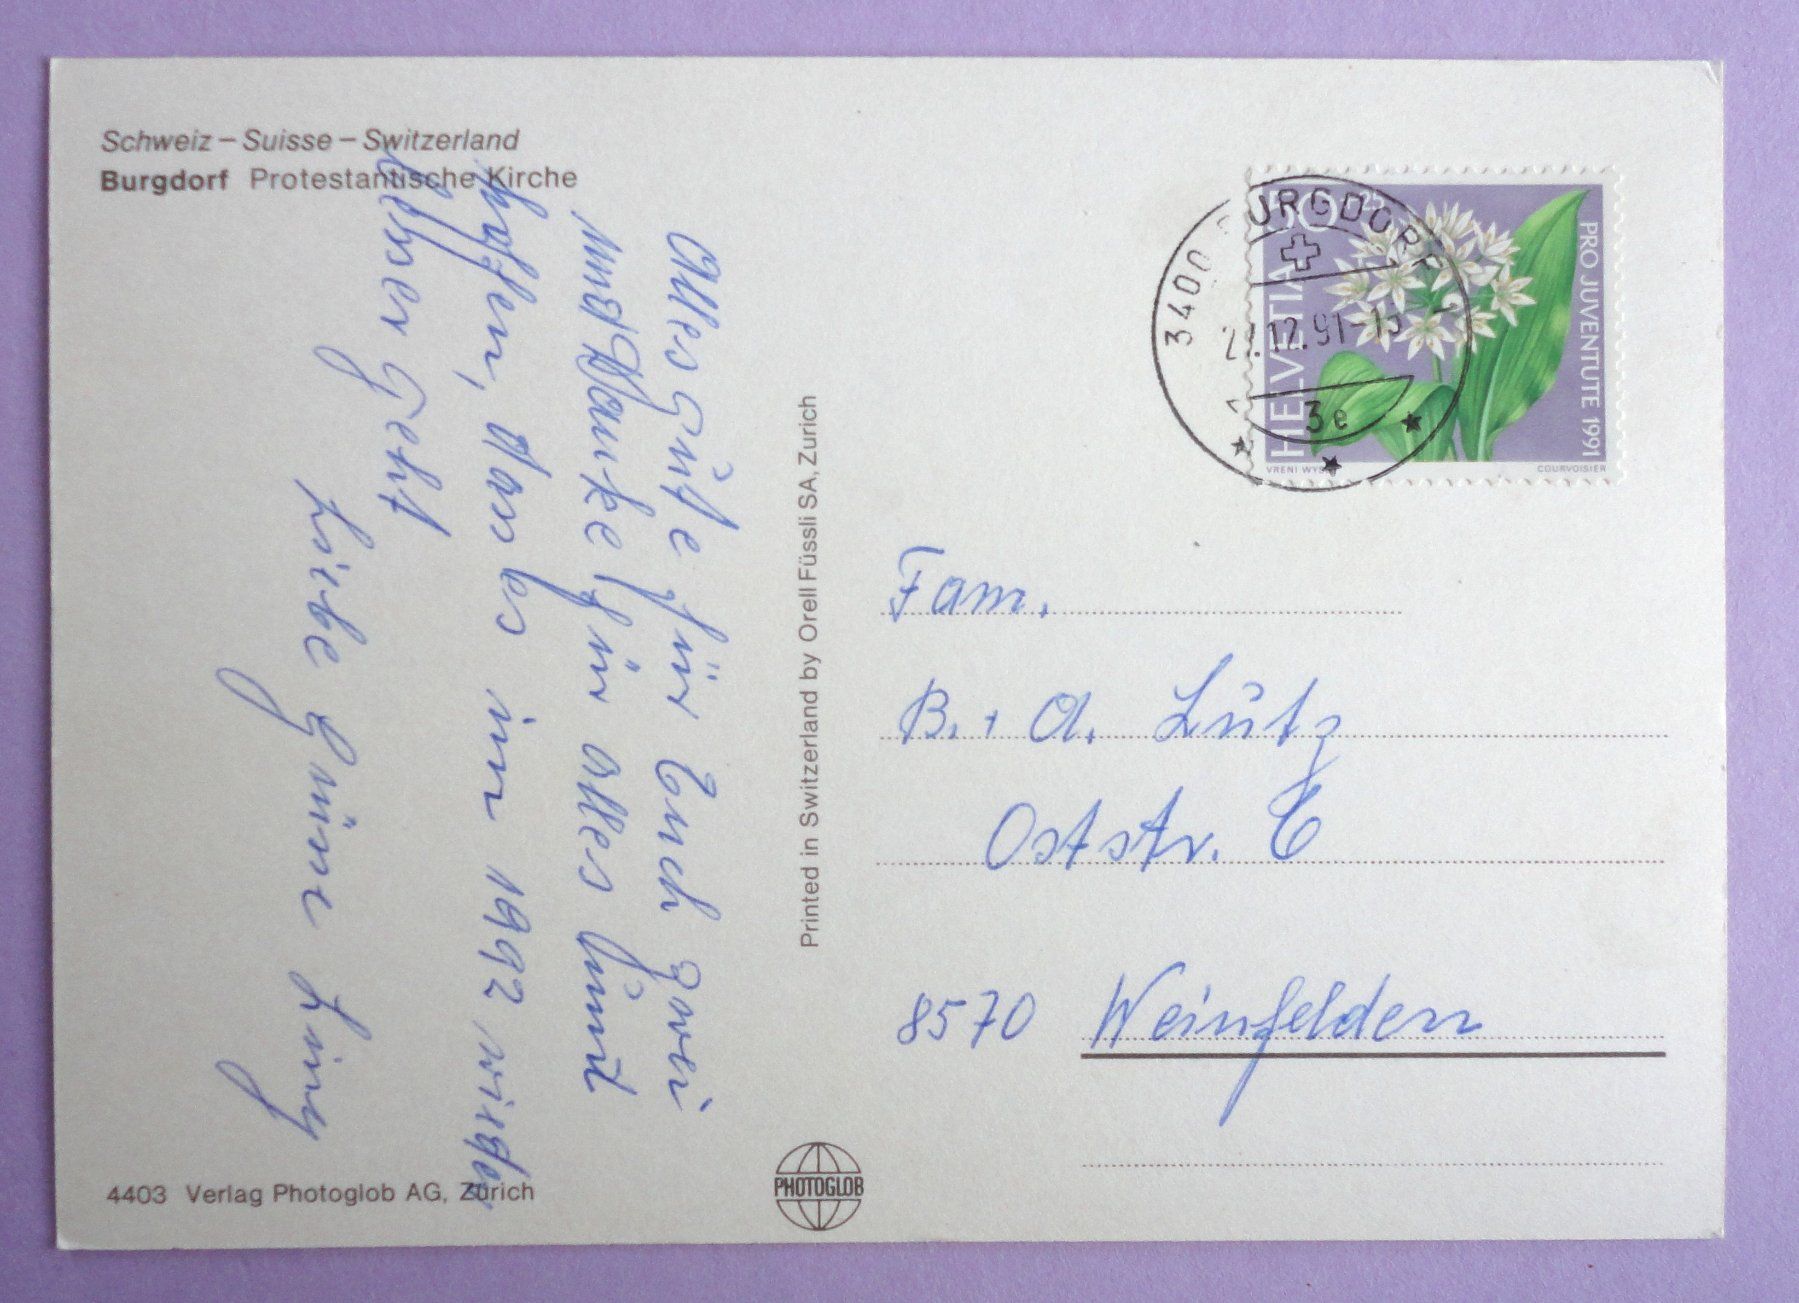 Schweiz – Suisse – Switzerland
Burgdorf Protestantische Kirche
Alles gute für Euch zwei
und Danke für alles und
hoffen, dass es im 1992 wieder
besser geht
Liebe Grüsse
Printed in Switzerland by Orell Füssli SA, Zurich
4403 Verlag Photoglob AG, Zürich
PHOTOGLOB
3400 BURGDORF
.12.91-15
3e
50+25
HELVETIA
PRO JUVENTUTE 1991
VRENI WYSS
COURVOISIER
Fam.
B. + A. Lutz
Oststr. 6
8570 Weinfelden